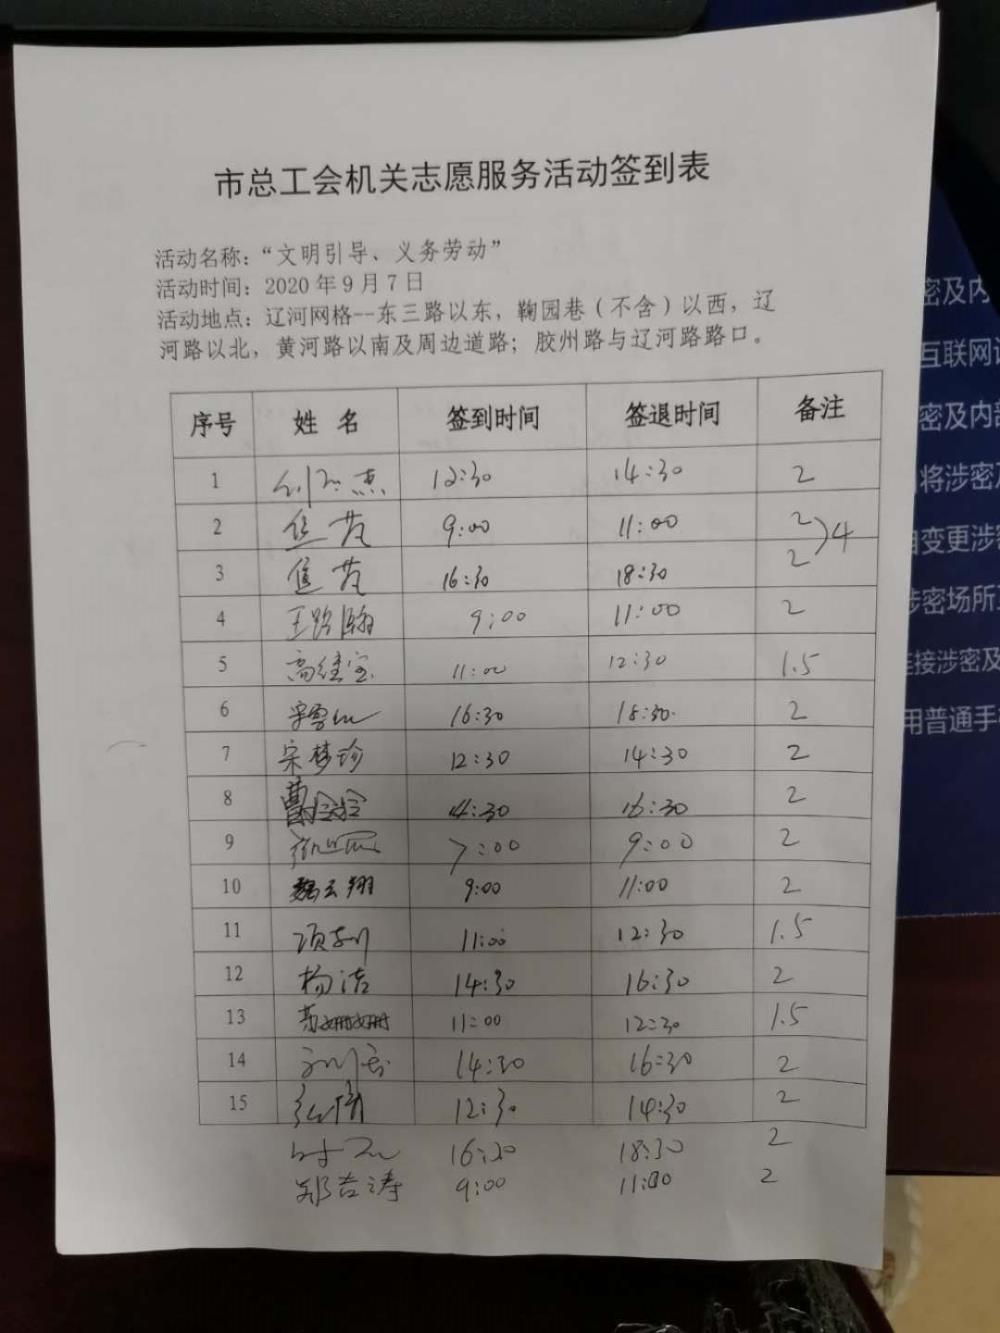 市总工会机关志愿服务活动签到表
活动名称：“文明引导、义务劳动”
活动时间：2020年9月7日
活动地点：辽河网格--东三路以东，鞠园巷（不含）以西，辽
河路以北，黄河路以南及周边道路；胶州路与辽河路路口。
序号 姓 名 签到时间 签退时间 备注
1 12:30 14:30 2
2 9:00 11:00 2
3 16:30 18:30 2 4
4 王路瀚 9:00 11:00 2
5 高继宝 11:00 12:30 1.5
6 16:30 18:30 2
7 宋梦珍 12:30 14:30 2
8 14:30 16:30 2
9 7:00 9:00 2
10 魏云翔 9:00 11:00 2
11 11:00 12:30 1.5
12 杨洁 14:30 16:30 2
13 11:00 12:30 1.5
14 14:30 16:30 2
15 12:30 14:30 2
16:30 18:30 2
郑吉涛 9:00 11:00 2
密及内
互联网
密及内
将涉密及
自变更涉
涉密场所
连接涉密及
用普通手